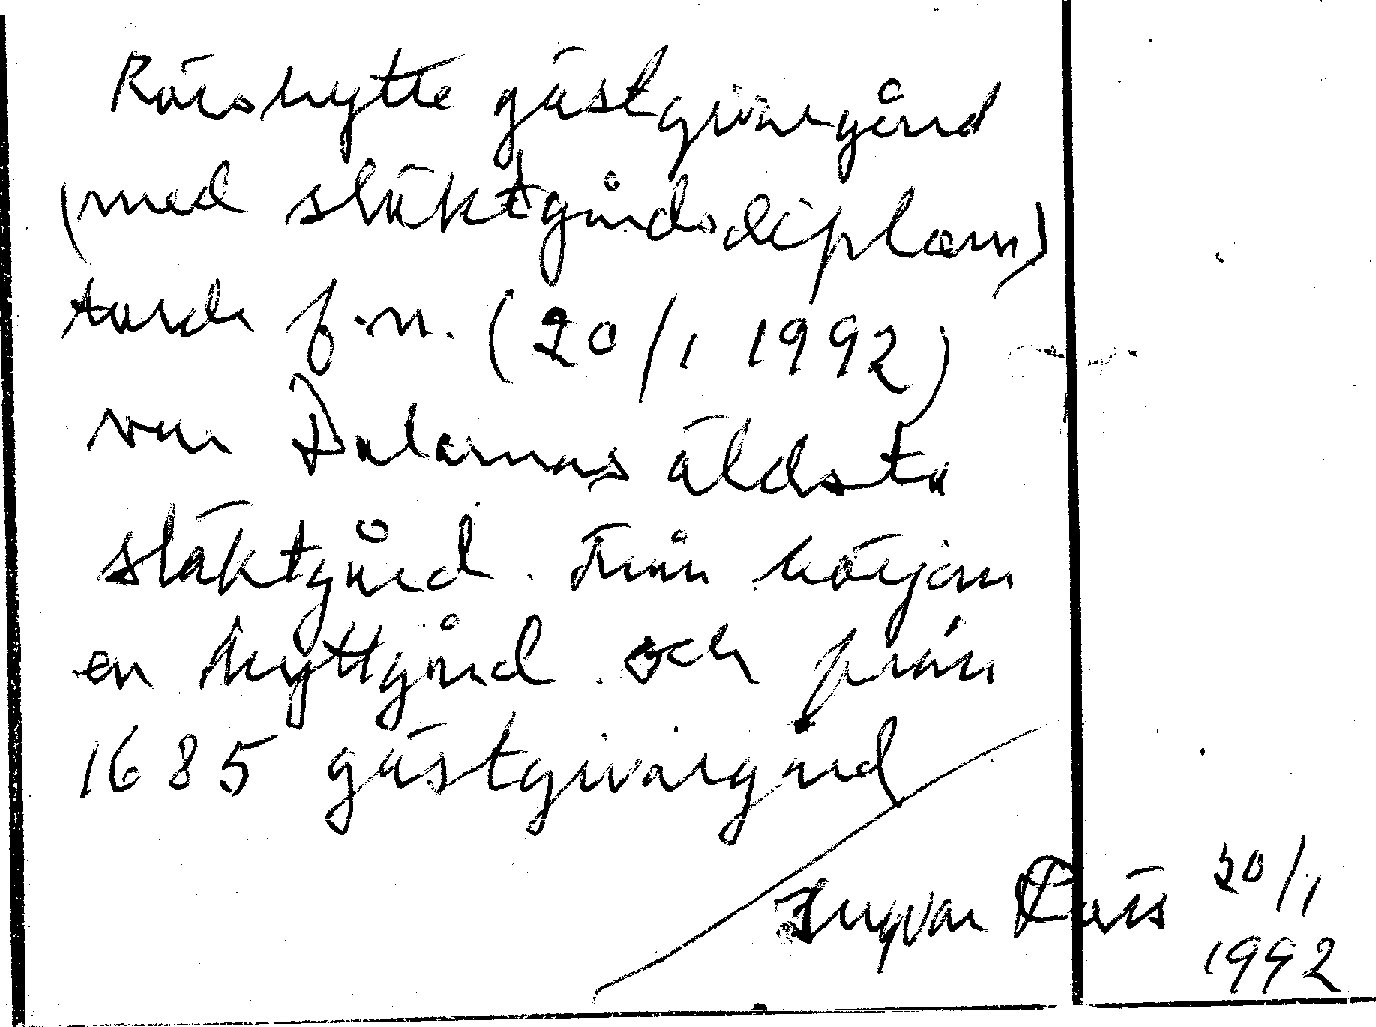 Rörshytte gästgivaregård
(med släktgårdsdiplom)
torde f.n. (20/1 1992)
vara Dalarnas äldsta
släktgård. Från början
en hyttgård och från
1685 gästgivaregård
Ingvar 20/1
1992